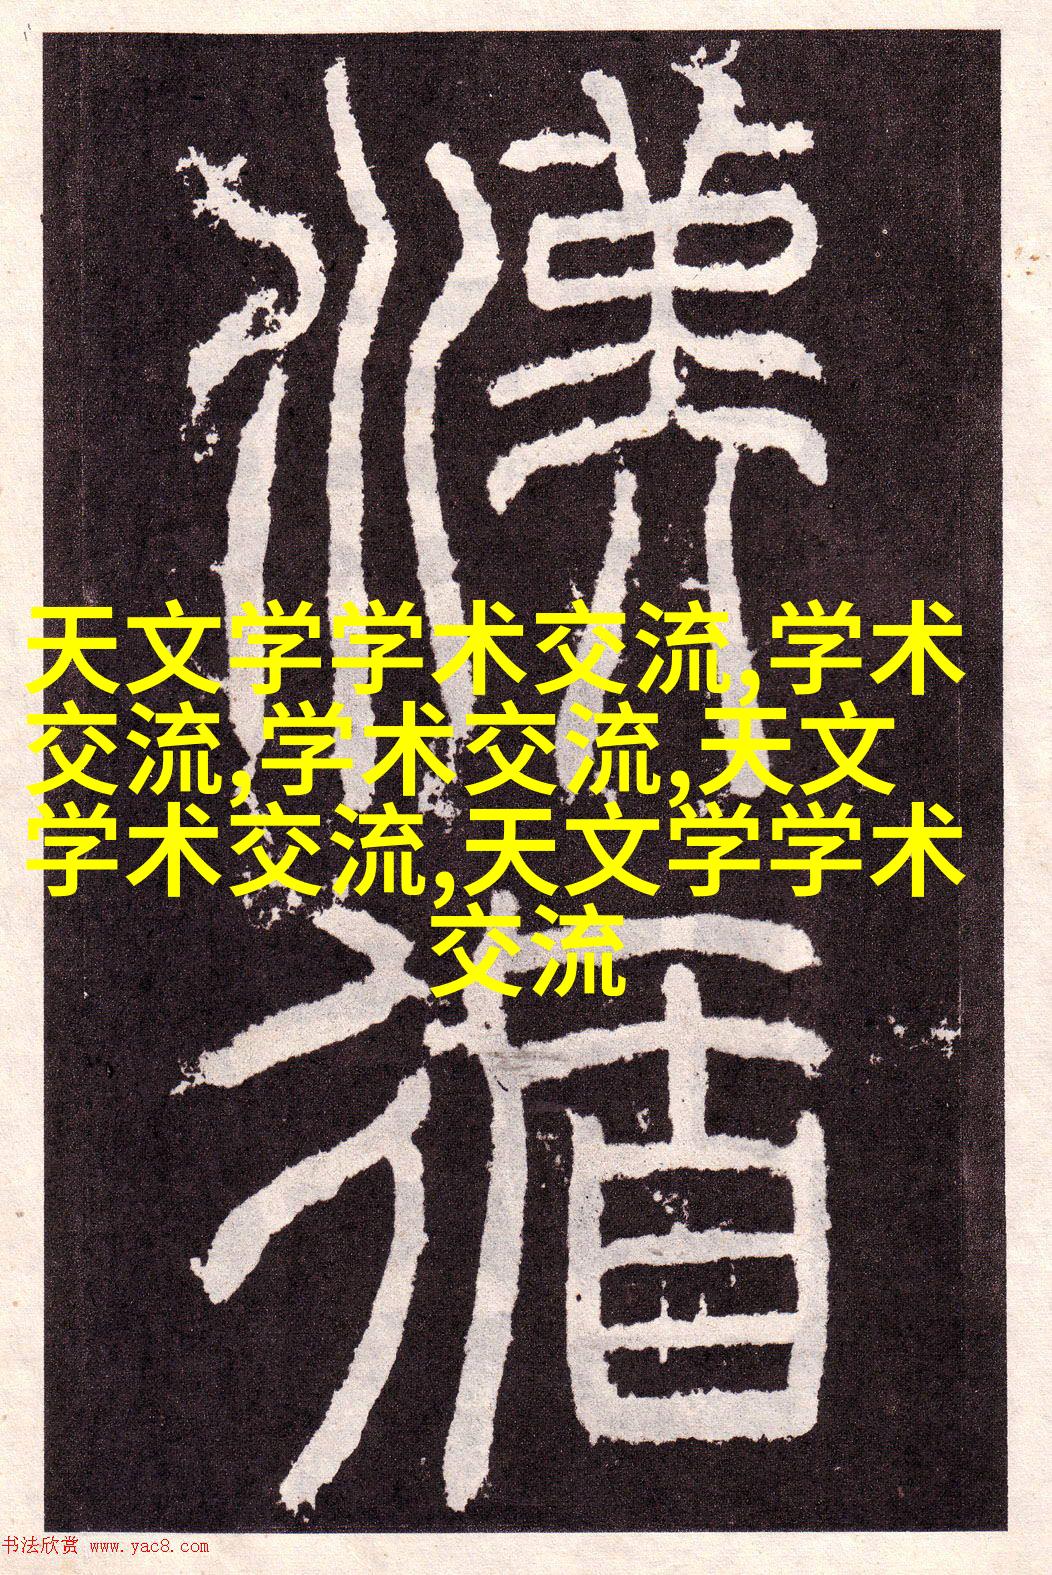 漢
天文学学术交流,学术
交流,学术交流,天文
学术交流,天文学学术
交流
循
书法欣赏 www.yac8.com